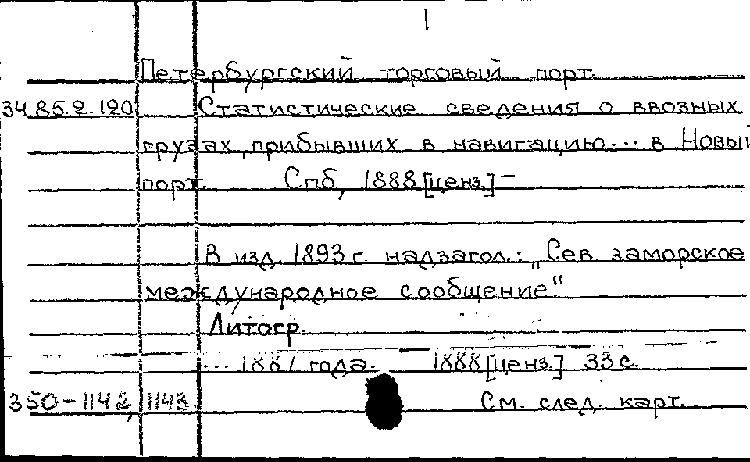 1
Петербургский торговый порт.
34.85.2.120 Статистические сведения о ввозных
грузах, прибывших в навигацию... в Новый
порт. Спб, 1888 [ценз.] –
В изд. 1893 г. надзагол.: „Сев. заморское
международное сообщение"
Литогр.
... 1887 года. 1888 [ценз.] 33 с.
350-1142, 1143. См. след. карт.